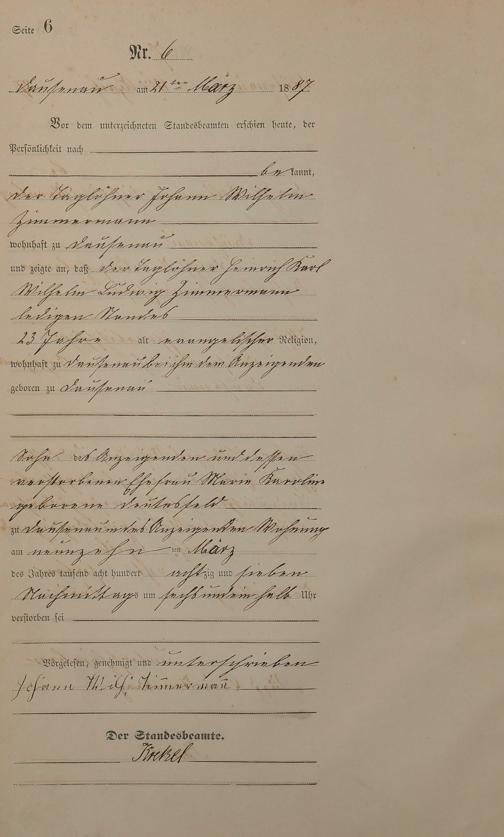 Seite 6
Nr. 6
Dausenau am 21ten März 1887
Vor dem unterzeichneten Standesbeamten erschien heute, der
Persönlichkeit nach
bekannt,
der Taglöhner Johann Wilhelm
Zimmermann
wohnhaft zu Dausenau
und zeigte an, daß der Taglöhner Heinrich Karl
Wilhelm Ludwig Zimmermann
ledigen Standes
23 Jahre alt evangelischer Religion,
wohnhaft zu Dausenau bei ihm dem Anzeigenden
geboren zu Dausenau
Sohn des Anzeigenden und dessen
verstorbenen Ehefrau Marie Karoline
geborene
zu Dausenau in des Anzeigenden Wohnung
am neunzehn ten März
des Jahres tausend acht hundert achtzig und sieben
Nachmittags um sechs und ein halb Uhr
verstorben sei
Vorgelesen, genehmigt und unterschrieben
Johann Wilh. Zimmermann
Der Standesbeamte.